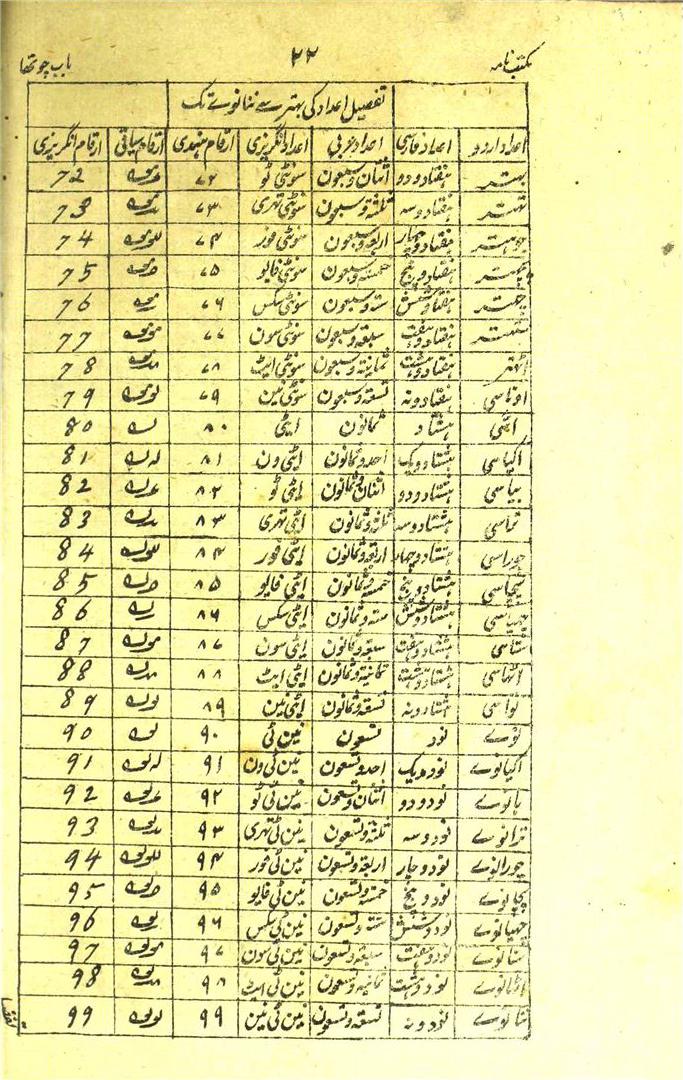 مکتب نامہ ۲۲ باب چوتھا
تفصیل اعداد کی بہتر سے ننانوے تک
اعداد اردو اعداد فارسی اعداد عربی اعداد انگریزی ارقام ہندی ارقام سیاقی ارقام انگریزی
بہتر ہفتاد و دو اثنان و سبعون سونٹی ٹو ۷۲ 72
تہتر ہفتاد و سہ ثلثة و سبعون سونٹی تھری ۷۳ 73
چوہتر ہفتاد و چہار اربعة و سبعون سونٹی فور ۷۴ 74
پچہتر ہفتاد و پنج خمسة و سبعون سونٹی فایو ۷۵ 75
چہتر ہفتاد و شش ستة و سبعون سونٹی سکس ۷۶ 76
ستتر ہفتاد و ہفت سبعة و سبعون سونٹی سون ۷۷ 77
اٹہتر ہفتاد و ہشت ثمانیة و سبعون سونٹی ایٹ ۷۸ 78
اوناسی ہفتاد و نہ تسعة و سبعون سونٹی نین ۷۹ 79
اسّی ہشتاد ثمانون ایٹی ۸۰ 80
اکیاسی ہشتاد و یک احد و ثمانون ایٹی ون ۸۱ 81
بیاسی ہشتاد و دو اثنان و ثمانون ایٹی ٹو ۸۲ 82
تراسی ہشتاد و سہ ثلثة و ثمانون ایٹی تھری ۸۳ 83
چوراسی ہشتاد و چہار اربعة و ثمانون ایٹی فور ۸۴ 84
پچاسی ہشتاد و پنج خمسة و ثمانون ایٹی فایو ۸۵ 85
چھیاسی ہشتاد و شش ستة و ثمانون ایٹی سکس ۸۶ 86
ستاسی ہشتاد و ہفت سبعة و ثمانون ایٹی سون ۸۷ 87
اٹھاسی ہشتاد و ہشت ثمانیة و ثمانون ایٹی ایٹ ۸۸ 88
نواسی ہشتاد و نہ تسعة و ثمانون ایٹی نین ۸۹ 89
نوے نود تسعون نین ٹی ۹۰ 90
اکیانوے نود و یک احد و تسعون نین ٹی ون ۹۱ 91
بانوے نود و دو اثنان و تسعون نین ٹی ٹو ۹۲ 92
ترانوے نود و سہ ثلثة و تسعون نین ٹی تھری ۹۳ 93
چورانوے نود و چار اربعة و تسعون نین ٹی فور ۹۴ 94
پچانوے نود و پنج خمسة و تسعون نین ٹی فایو ۹۵ 95
چھیانوے نود و شش ستة و تسعون نین ٹی سکس ۹۶ 96
ستانوے نود و ہفت سبعة و تسعون نین ٹی سون ۹۷ 97
اٹھانوے نود و ہشت ثمانیة و تسعون نین ٹی ایٹ ۹۸ 98
ننانوے نود و نہ تسعة و تسعون نین ٹی نین ۹۹ 99